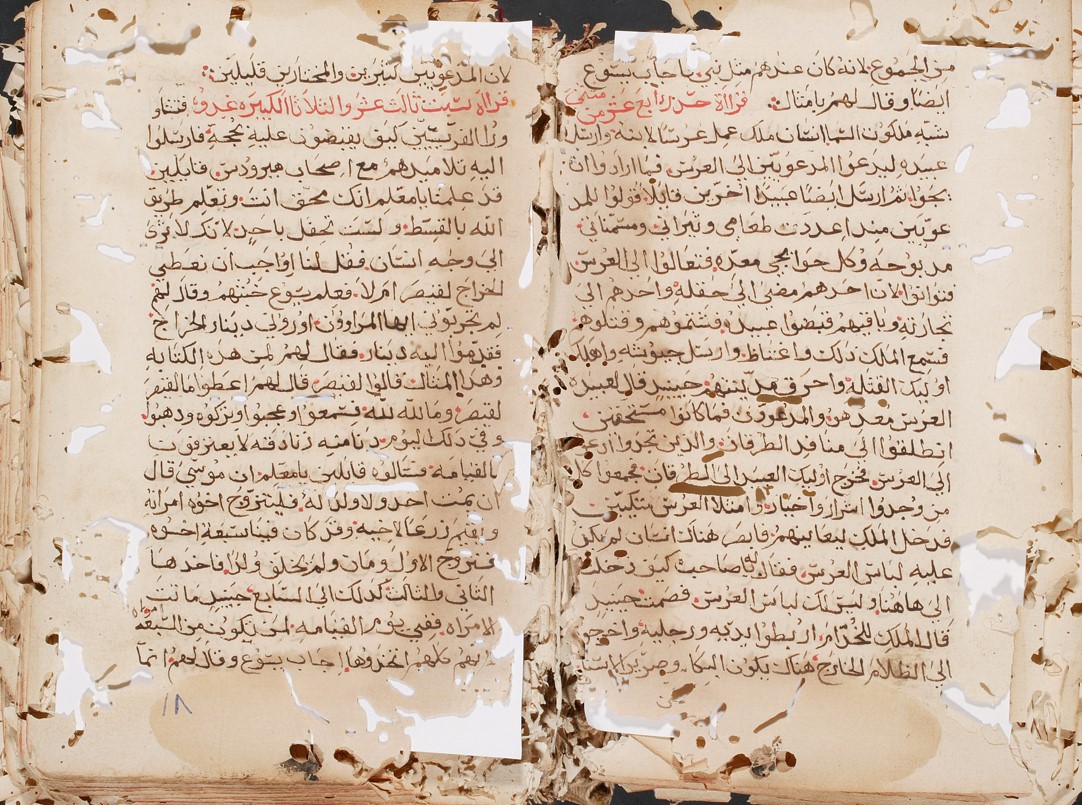 من الجموع لانه كان عندهم مثل نبي فاجاب يسوع
ايضا وقال لهم بامثال قراة حد رابع عشر متى
يشبه ملكوت السماانسان ملك عمل عرسا لابنه وارسل
عبيده ليدعوا المدعويين الى العرس فما ارادوا ان
يجوا ثم ارسل ايضا عبيدا اخرين قايلا قولوا للمد
عويين هيذا اعددت طعامي وثيراني ومسمناتي
مدبوحه وكل حوايجي معده فتعالوا الى العرس
فتوانوا لان احدهم مضى الى حقله واخدهم الى
تجارته وباقيهم قبضوا عبيده وشتموهم وقتلوهم
فسمع الملك دلك واغتاظ وارسل جيوشه واهلك
اوليك القتله واحرق مدينتهم حينيد قال لعبيده
العرس معد هو والمدعوون فما كانوا مستحقين
انطلقوا الى منافد الطرقات والدين تجدوا ادعوا
الى العرس فخرج اوليك العبيد الى الطرقات فجمعوا كل
من وجدوا اشرار واخيار وامتلا العرس متكيين
فدخل الملك ليعاين فابصر هناك انسان لم يكن
عليه لباس العرس فقال له ياصاحب كيف دخلت
الى هاهنا وليس لك لباس العرس فصمت حينيد
قال الملك للخدام اربطوا يديه ورجليه واخرجوه
الى الظلام الخارج هناك يكون البكا وصرير الاسنان
لان المدعويين كثيرين والمختارين قليلين
قراة سبت ثالث عشر والثلاثا الكبيره غدوه فتشاو
روا الفريسيين كيف يقتضون عليه بحجة فارسلوا
اليه تلاميدهم مع اصحاب هيرودس قايلين
قد علمنا يامعلم انك محق انت وتعلم طريق
الله بالقسط وليست تحفل باحد لانك لا ترى
الى وجه انسان فقل لنا اواجب ان نعطي
الخراج لقيصر ام لا فعلم يسوع خبثهم وقال لهم
لم تجربوني ايها المراوون اوروني دينار الخراج
فقدموا اليه دينار فقال لهم لمن هده الكتابه
وهدا المثال قالوا لقيصر قال لهم اعطوا ما لقيصر
لقيصر وما لله لله فسمعوا وعجبوا وتركوه ودهبوا
وفي دلك اليوم دنا منه زنادقه لا يعترفون
بالقيامه فسالوه قايلين يامعلم ان موسى قال
ان يمت احد ولا ولد له فليتزوج اخوه امراته
ويقيم زرعا لاخيه وقد كان فينا سبعة اخوه
فتزوج الاول ومات ولم يخلف ولدا فاخدها
الثاني والثالث كدلك الى السابع حينيد ماتت
الامراه ففي يوم القيامه لمن تكون من السبعه
لانهم كلهم اتخدوها اجاب يسوع وقال لهم انما
١٨